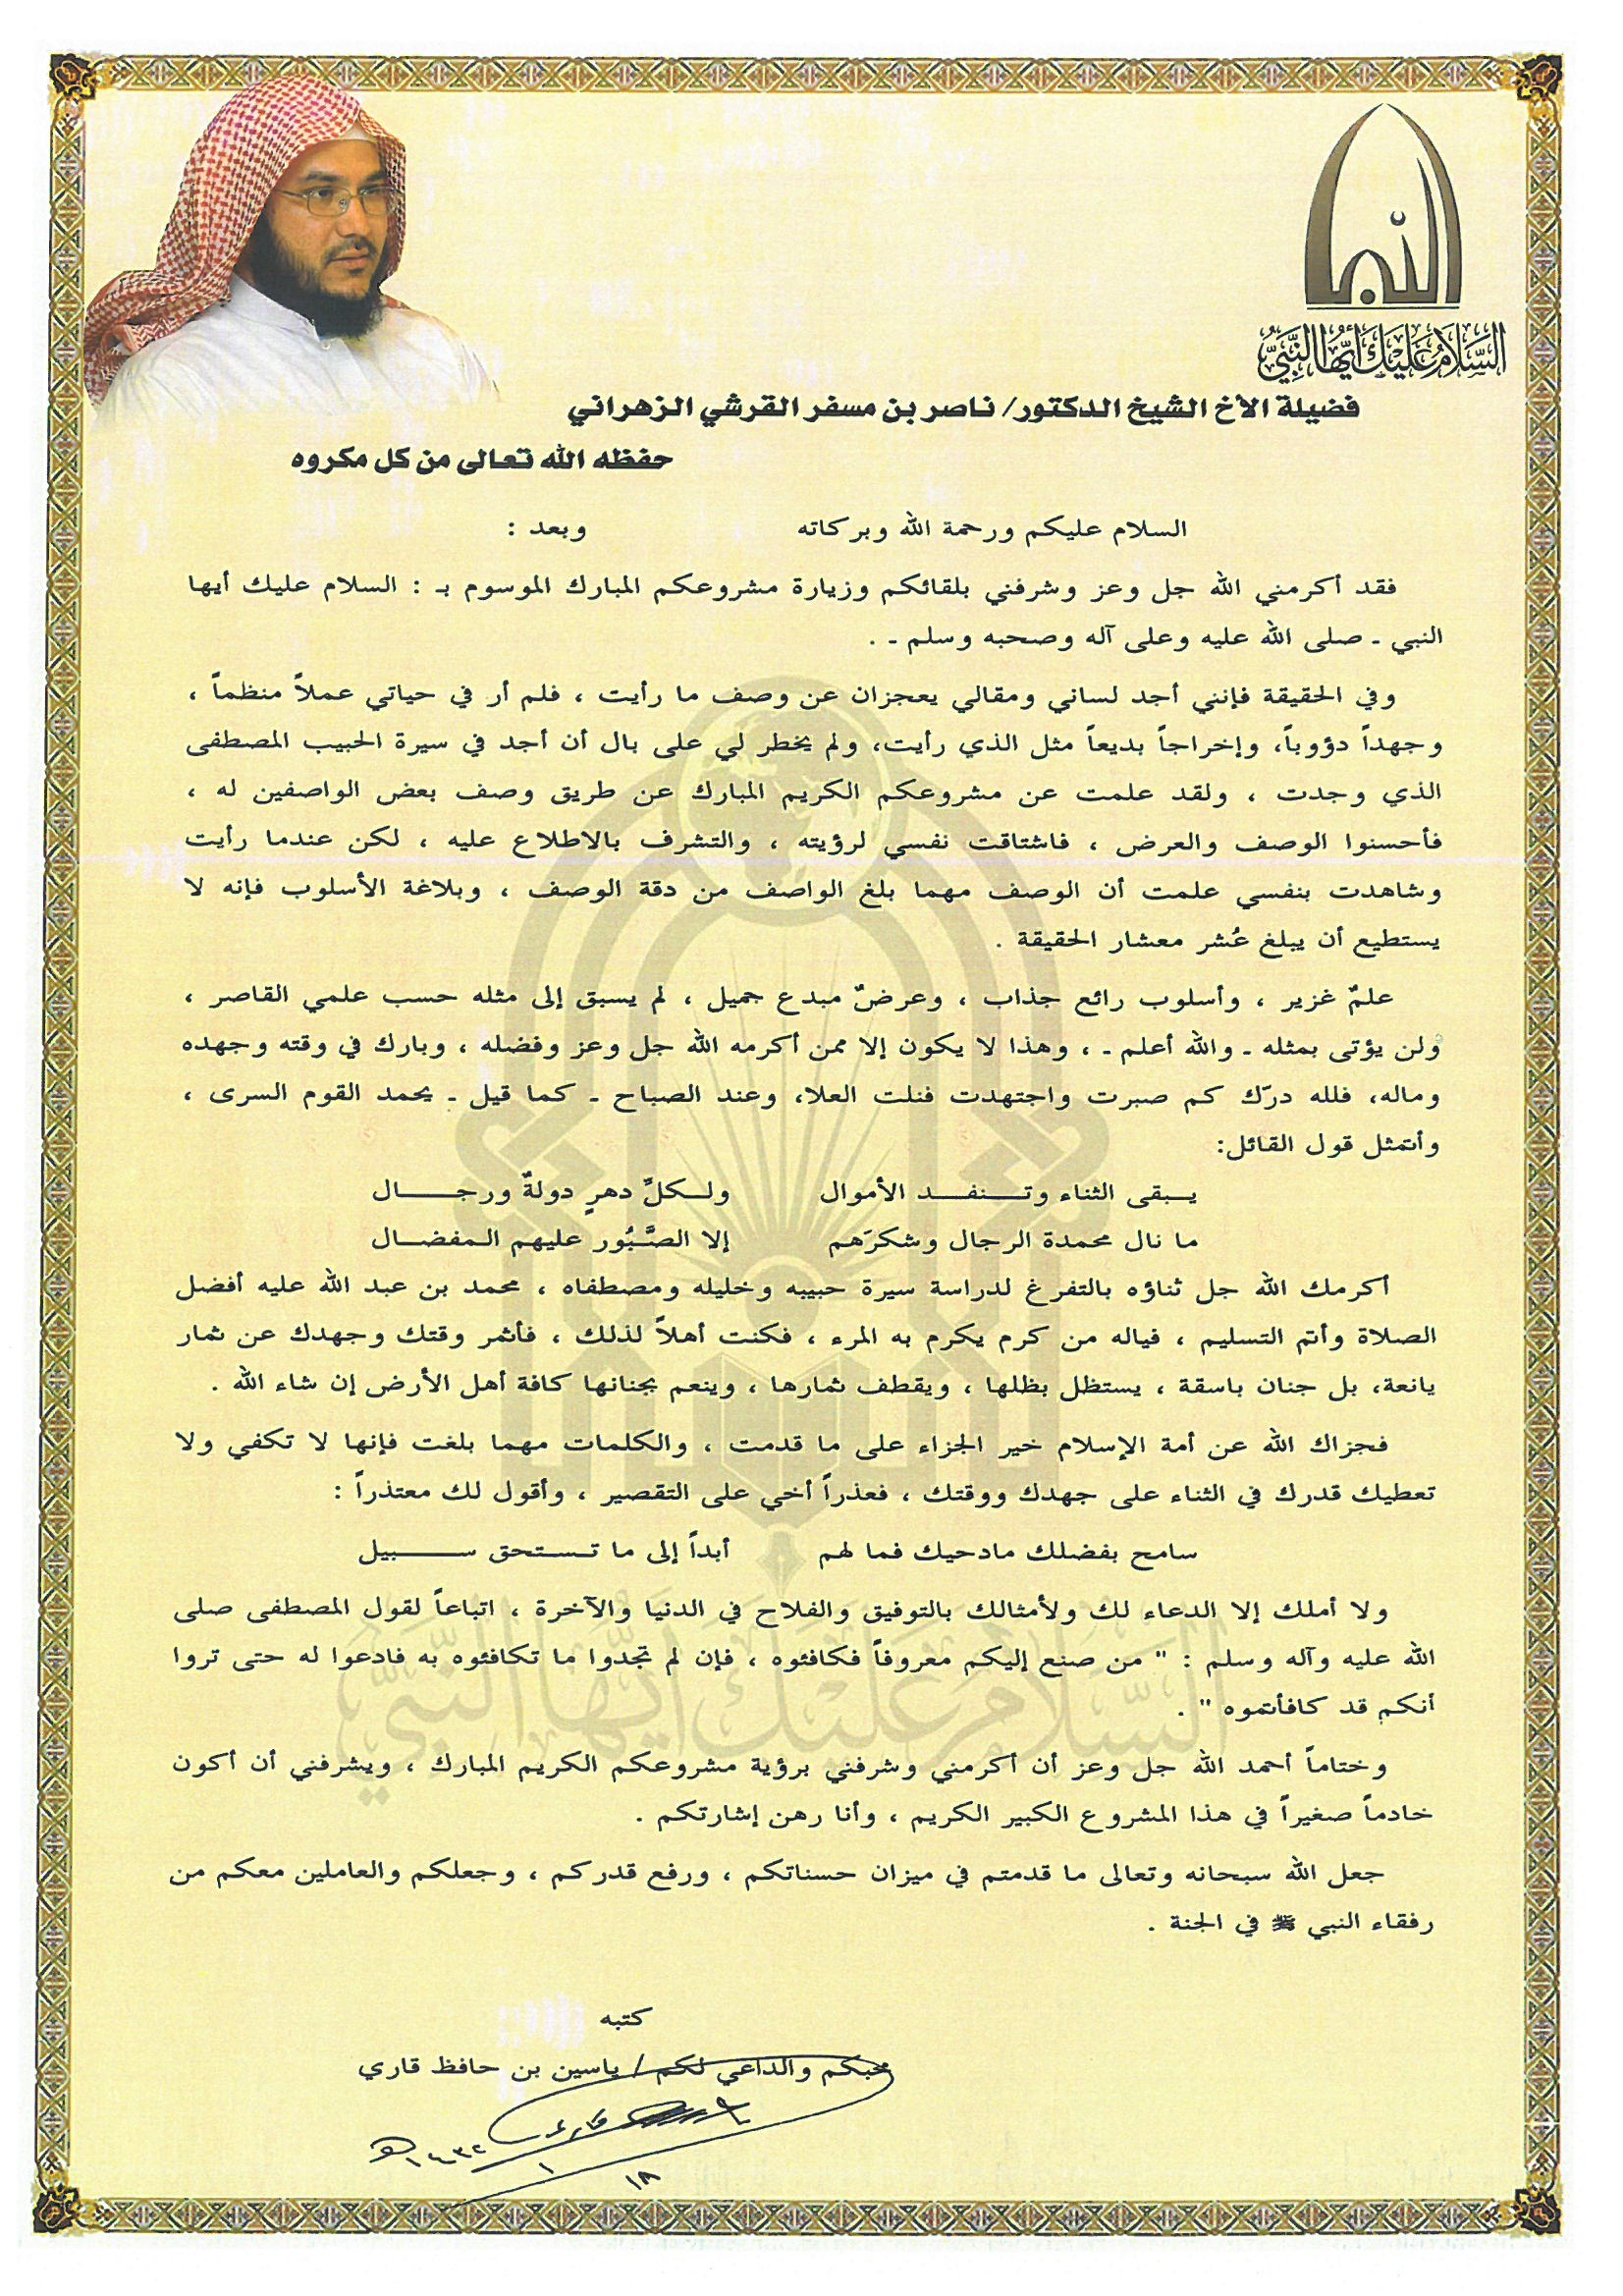 السلام عليك أيها النبي
فضيلة الأخ الشيخ الدكتور/ ناصر بن مسفر القرشي الزهراني
حفظه الله تعالى من كل مكروه
السلام عليكم ورحمة الله وبركاته وبعد :
فقد أكرمني الله جل وعز وشرفني بلقائكم وزيارة مشروعكم المبارك الموسوم بـ : السلام عليك أيها
النبي ـ صلى الله عليه وعلى آله وصحبه وسلم ـ .
وفي الحقيقة فإنني أجد لساني ومقالي يعجزان عن وصف ما رأيت ، فلم أر في حياتي عملاً منظماً ،
وجهداً دؤوباً، وإخراجاً بديعاً مثل الذي رأيت، ولم يخطر لي على بال أن أجد في سيرة الحبيب المصطفى
الذي وجدت ، ولقد علمت عن مشروعكم الكريم المبارك عن طريق وصف بعض الواصفين له ،
فأحسنوا الوصف والعرض ، فاشتاقت نفسي لرؤيته ، والتشرف بالاطلاع عليه ، لكن عندما رأيت
وشاهدت بنفسي علمت أن الوصف مهما بلغ الواصف من دقة الوصف ، وبلاغة الأسلوب فإنه لا
يستطيع أن يبلغ عُشر معشار الحقيقة .
علمٌ غزير ، وأسلوب رائع جذاب ، وعرضٌ مبدع جميل ، لم يسبق إلى مثله حسب علمي القاصر ،
ولن يؤتى بمثله ـ والله أعلم ـ ، وهذا لا يكون إلا ممن أكرمه الله جل وعز وفضله ، وبارك في وقته وجهده
وماله، فلله درّك كم صبرت واجتهدت فنلت العلا، وعند الصباح ـ كما قيل ـ يحمد القوم السرى ،
وأتمثل قول القائل:
يـبقى الثناء وتـنفـد الأموال ولـكلِّ دهرٍ دولةٌ ورجـال
ما نال محمدة الرجال وشكرَهم إلا الصَّبُور عليهم المفضـال
أكرمك الله جل ثناؤه بالتفرغ لدراسة سيرة حبيبه وخليله ومصطفاه ، محمد بن عبد الله عليه أفضل
الصلاة وأتم التسليم ، فياله من كرم يكرم به المرء ، فكنت أهلاً لذلك ، فأثمر وقتك وجهدك عن ثمار
يانعة، بل جنان باسقة ، يستظل بظلها ، ويقطف ثمارها ، وينعم بجنانها كافة أهل الأرض إن شاء الله .
فجزاك الله عن أمة الإسلام خير الجزاء على ما قدمت ، والكلمات مهما بلغت فإنها لا تكفي ولا
تعطيك قدرك في الثناء على جهدك ووقتك ، فعذراً أخي على التقصير ، وأقول لك معتذراً :
سامح بفضلك مادحيك فما لهم أبداً إلى ما تـستحق سـبيل
ولا أملك إلا الدعاء لك ولأمثالك بالتوفيق والفلاح في الدنيا والآخرة ، اتباعاً لقول المصطفى صلى
الله عليه وآله وسلم : " من صنع إليكم معروفاً فكافئوه ، فإن لم تجدوا ما تكافئوه به فادعوا له حتى تروا
أنكم قد كافأتموه " .
وختاماً أحمد الله جل وعز أن أكرمني وشرفني برؤية مشروعكم الكريم المبارك ، ويشرفني أن أكون
خادماً صغيراً في هذا المشروع الكبير الكريم ، وأنا رهن إشارتكم .
جعل الله سبحانه وتعالى ما قدمتم في ميزان حسناتكم ، ورفع قدركم ، وجعلكم والعاملين معكم من
رفقاء النبي ﷺ في الجنة .
كتبه
محبكم والداعي لكم / ياسين بن حافظ قاري
١٨ / ١ / ١٤٣٢هـ